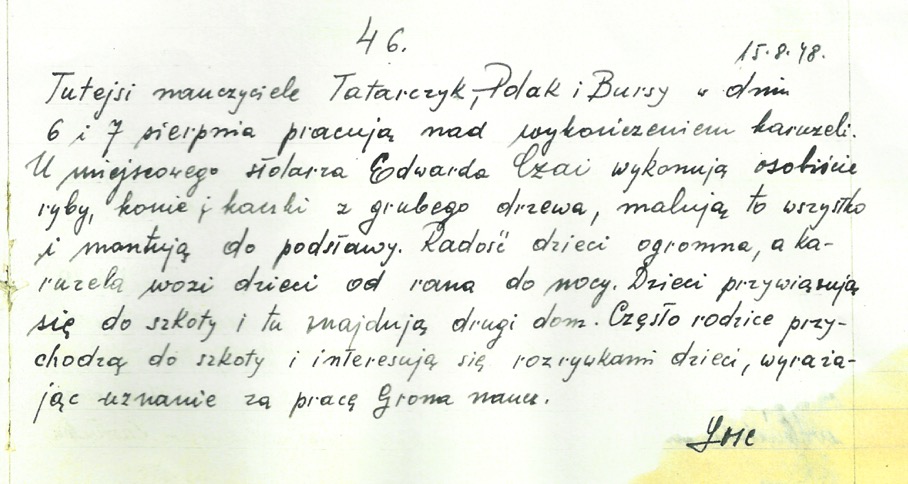 46.
15.8.48.
Tutejsi nauczyciele Tatarczyk, Polak i Bursy w dniu
6 i 7 sierpnia pracują nad wykończeniem karuzeli.
U miejscowego stolarza Edwarda Czai wykonują osobiście
ryby, konie i kaczki z grubego drzewa, malują to wszystko
i montują do podstawy. Radość dzieci ogromna, a ka-
ruzela wozi dzieci od rana do nocy. Dzieci przywiązują
się do szkoły i tu znajdują drugi dom. Często rodzice przy-
chodzą do szkoły i interesują się rozrywkami dzieci, wyraża-
jąc uznanie za pracę Grona naucz.